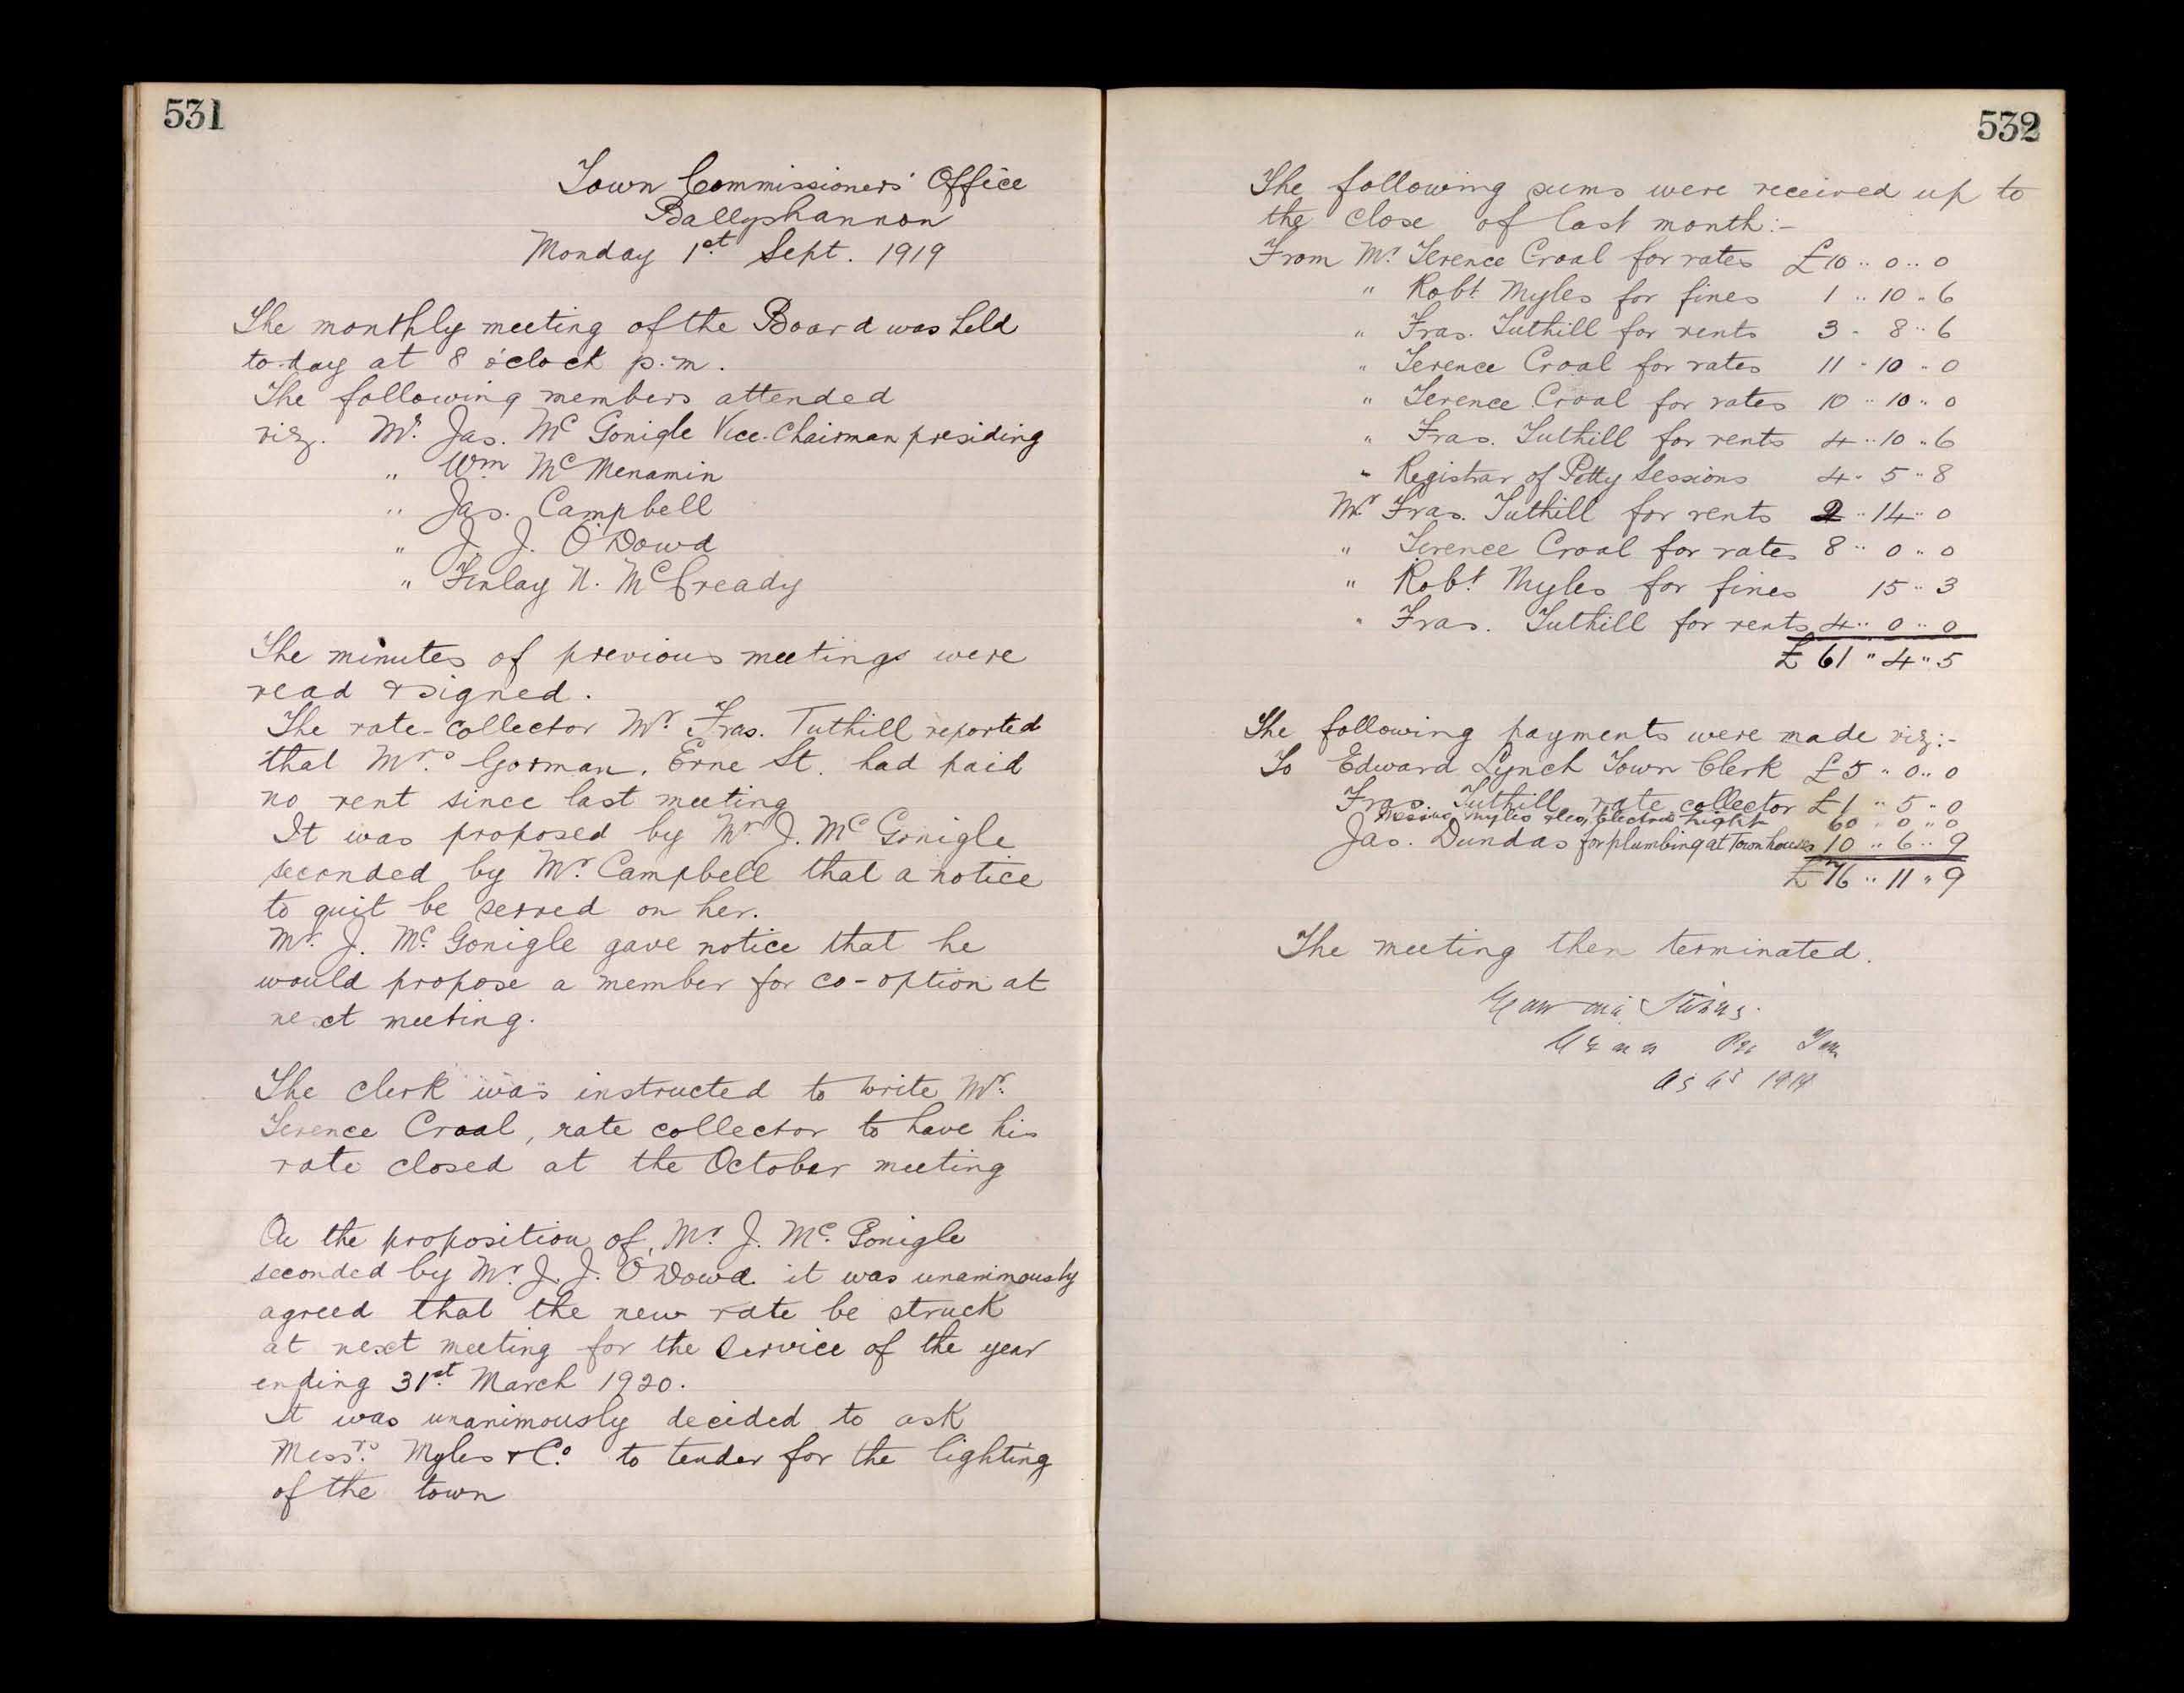 531
Town Commissioners' Office
Ballyshannon
Monday 1st Sept. 1919
The monthly meeting of the Board was held
to-day at 8 o'clock p.m.
The following members attended
viz. Mr. Jas. McGonigle Vice-Chairman presiding
" Wm McMenamin
" Jas. Campbell
" J. J. O'Dowd
" Finlay N. McCready
The minutes of previous meetings were
read & signed.
The rate-collector Mr. Fras. Tuthill reported
that Mrs. Gorman, Erne St. had paid
no rent since last meeting
It was proposed by Mr J. McGonigle
seconded by Mr. Campbell that a notice
to quit be served on her.
Mr. J. McGonigle gave notice that he
would propose a member for co-option at
next meeting.
The clerk was instructed to write Mr.
Terence Croal, rate collector to have his
rate closed at the October meeting
On the proposition of Mr. J. McGonigle
seconded by Mr. J. J. O'Dowd it was unanimously
agreed that the new rate be struck
at next meeting for the service of the year
ending 31st March 1920.
It was unanimously decided to ask
Messrs. Myles & Co. to tender for the lighting
of the town
532
The following sums were received up to
the close of last month:-
From Mr. Terence Croal for rates £10 .. 0 .. 0
" Robt. Myles for fines 1 .. 10 .. 6
" Fras. Tuthill for rents 3 .. 8 .. 6
" Terence Croal for rates 11 .. 10 .. 0
" Terence Croal for rates 10 .. 10 .. 0
" Fras. Tuthill for rents 4 .. 10 .. 6
" Registrar of Petty Sessions 4 .. 5 .. 8
Mr. Fras. Tuthill for rents 2 .. 14 .. 0
" Terence Croal for rates 8 .. 0 .. 0
" Robt. Myles for fines 15 .. 3
" Fras. Tuthill for rents 4 .. 0 .. 0
£ 61 " 4 " 5
The following payments were made viz:-
To Edward Lynch Town Clerk £5 .. 0 .. 0
Fras. Tuthill rate collector £1 .. 5 .. 0
Messrs Myles & Co, Electric Light 60 .. 0 .. 0
Jas. Dundas for plumbing at Town houses 10 .. 6 .. 9
£76 .. 11 .. 9
The meeting then terminated.
1919